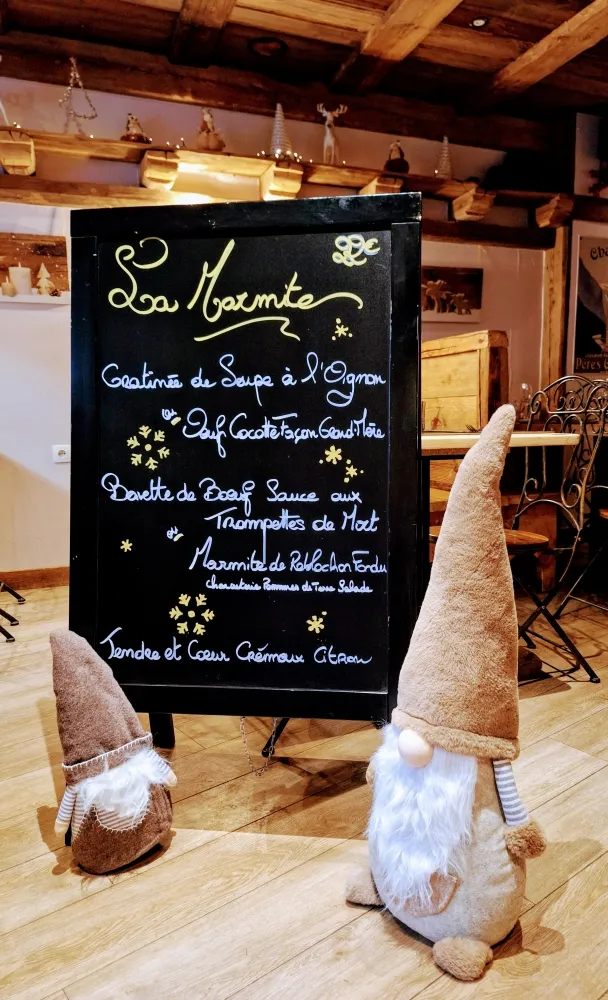 La Marmite
Gratinée de Soupe à l'Ognon
ou
Oeuf Cocotte Façon Grand-Mère
Bavette de Boeuf Sauce aux
Trompettes de Mort
ou
Marmite de Reblochon Fondu
Charcuterie Pommes de Terre Salade
Tendre et Coeur Crémoux Citron
Peres